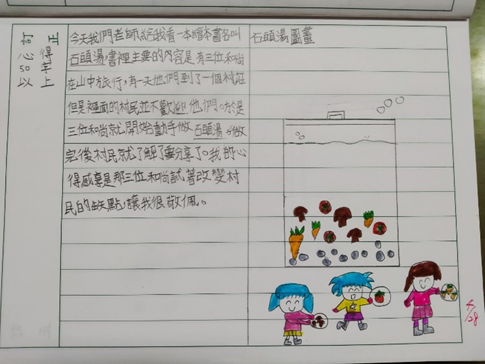 訂正
心得
50
以上
今天我們老師給我看一本繪本書名叫
石頭湯,書裡主要的內容是有三位和尚
在山中旅行,有一天他們到了一個村莊
但是裡面的村民並不歡迎他們。於是
三位和尚就開始動手做石頭湯,做
完後村民就了解了要分享了。我的心
得感意是那三位和尚試著改變村
民的缺點,讓我很敬佩。
石頭湯圖畫
4/28